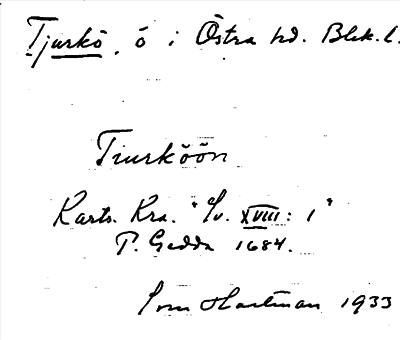 Tjurkö, ö i Östra hd. Blek. l.
Tiurköön
Karts. Kra. "Sv. XVIII: 1"
P. Gedda 1684.
Hartman 1933